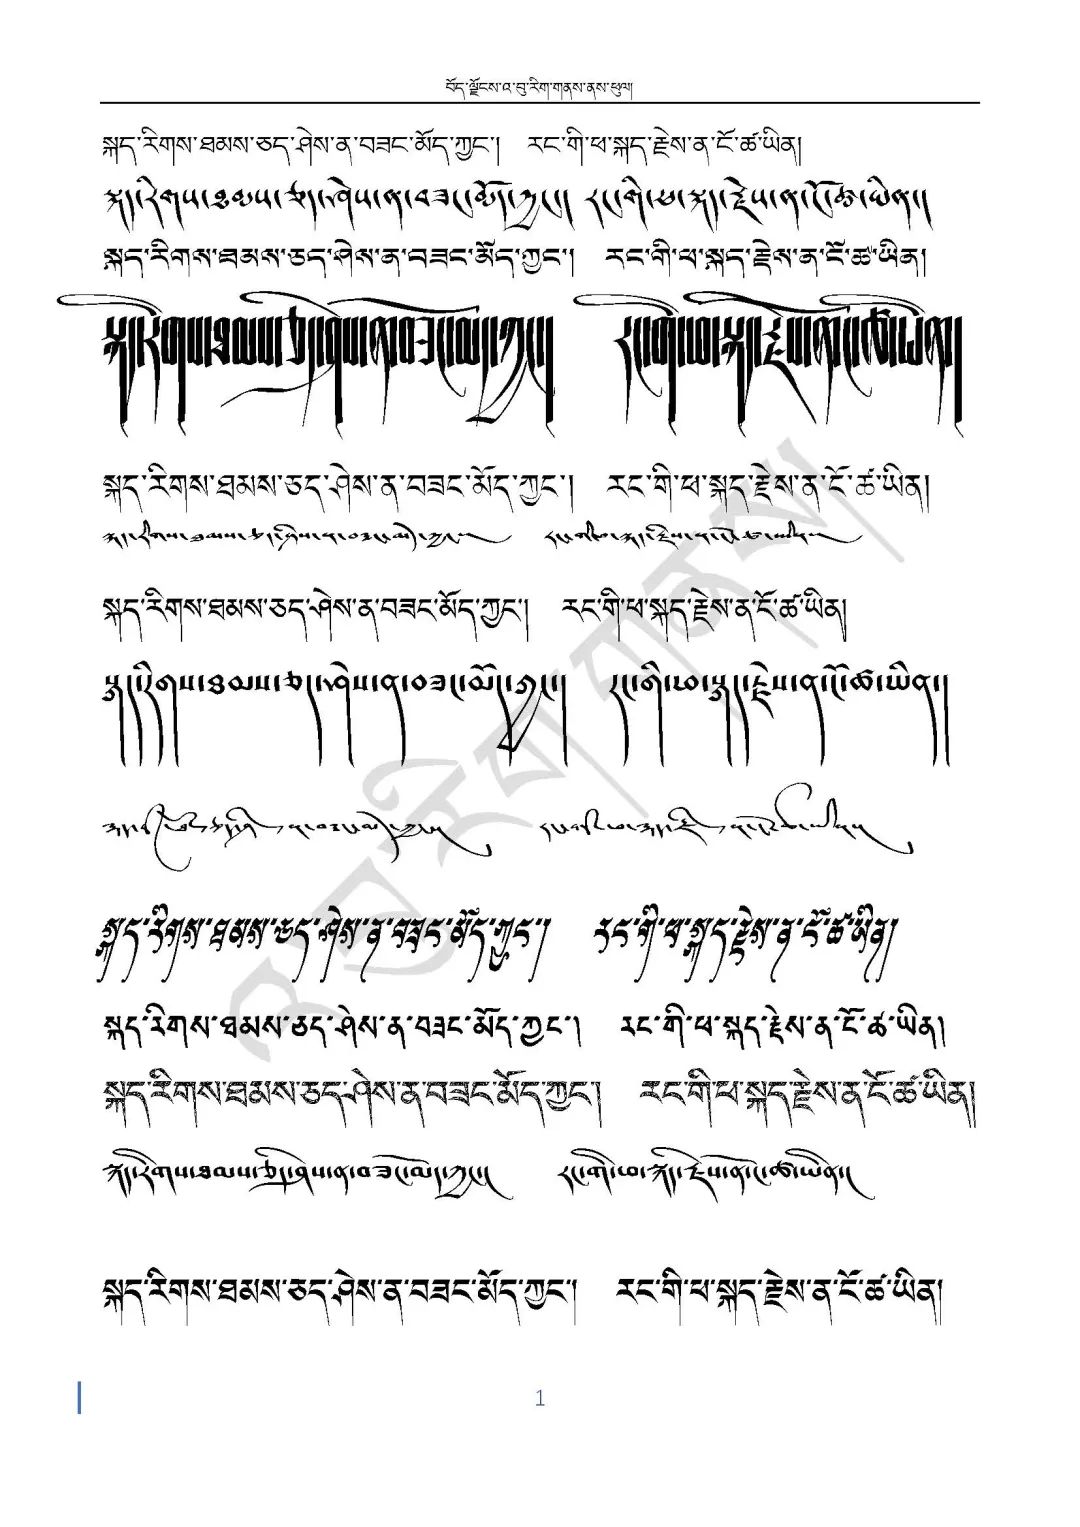 བོད་ལྗོངས་འ་བུ་རིག་གནས་ནས་ཕུལ།
སྐད་རིགས་ཐམས་ཅད་ཤེས་ན་བཟང་མོད་ཀྱང་། རང་གི་ཕ་སྐད་རྗེས་ན་ངོ་ཚ་ཡིན།
སྐད་རིགས་ཐམས་ཅད་ཤེས་ན་བཟང་མོད་ཀྱང་།། རང་གི་ཕ་སྐད་རྗེས་ན་ངོ་ཚ་ཡིན།།
སྐད་རིགས་ཐམས་ཅད་ཤེས་ན་བཟང་མོད་ཀྱང་། རང་གི་ཕ་སྐད་རྗེས་ན་ངོ་ཚ་ཡིན།
སྐད་རིགས་ཐམས་ཅད་ཤེས་ན་བཟང་མོད་ཀྱང་། རང་གི་ཕ་སྐད་རྗེས་ན་ངོ་ཚ་ཡིན།
སྐད་རིགས་ཐམས་ཅད་ཤེས་ན་བཟང་མོད་ཀྱང་། རང་གི་ཕ་སྐད་རྗེས་ན་ངོ་ཚ་ཡིན།
སྐད་རིགས་ཐམས་ཅད་ཤེས་ན་བཟང་མོད་ཀྱང་ རང་གི་ཕ་སྐད་རྗེས་ན་ངོ་ཚ་ཡིན
སྐད་རིགས་ཐམས་ཅད་ཤེས་ན་བཟང་མོད་ཀྱང་། རང་གི་ཕ་སྐད་རྗེས་ན་ངོ་ཚ་ཡིན།
སྐད་རིགས་ཐམས་ཅད་ཤེས་ན་བཟང་མོད་ཀྱང་། རང་གི་ཕ་སྐད་རྗེས་ན་ངོ་ཚ་ཡིན།
སྐད་རིགས་ཐམས་ཅད་ཤེས་ན་བཟང་མོད་ཀྱང་། རང་གི་ཕ་སྐད་རྗེས་ན་ངོ་ཚ་ཡིན།
སྐད་རིགས་ཐམས་ཅད་ཤེས་ན་བཟང་མོད་ཀྱང་། རང་གི་ཕ་སྐད་རྗེས་ན་ངོ་ཚ་ཡིན།
སྐད་རིགས་ཐམས་ཅད་ཤེས་ན་བཟང་མོད་ཀྱང་། རང་གི་ཕ་སྐད་རྗེས་ན་ངོ་ཚ་ཡིན།
སྐད་རིགས་ཐམས་ཅད་ཤེས་ན་བཟང་མོད་ཀྱང་། རང་གི་ཕ་སྐད་རྗེས་ན་ངོ་ཚ་ཡིན།
སྐད་རིགས་ཐམས་ཅད་ཤེས་ན་བཟང་མོད་ཀྱང་། རང་གི་ཕ་སྐད་རྗེས་ན་ངོ་ཚ་ཡིན།
སྐད་རིགས་ཐམས་ཅད་ཤེས་ན་བཟང་མོད་ཀྱང་། རང་གི་ཕ་སྐད་རྗེས་ན་ངོ་ཚ་ཡིན།
འ་བུ་རིག་གནས།
1